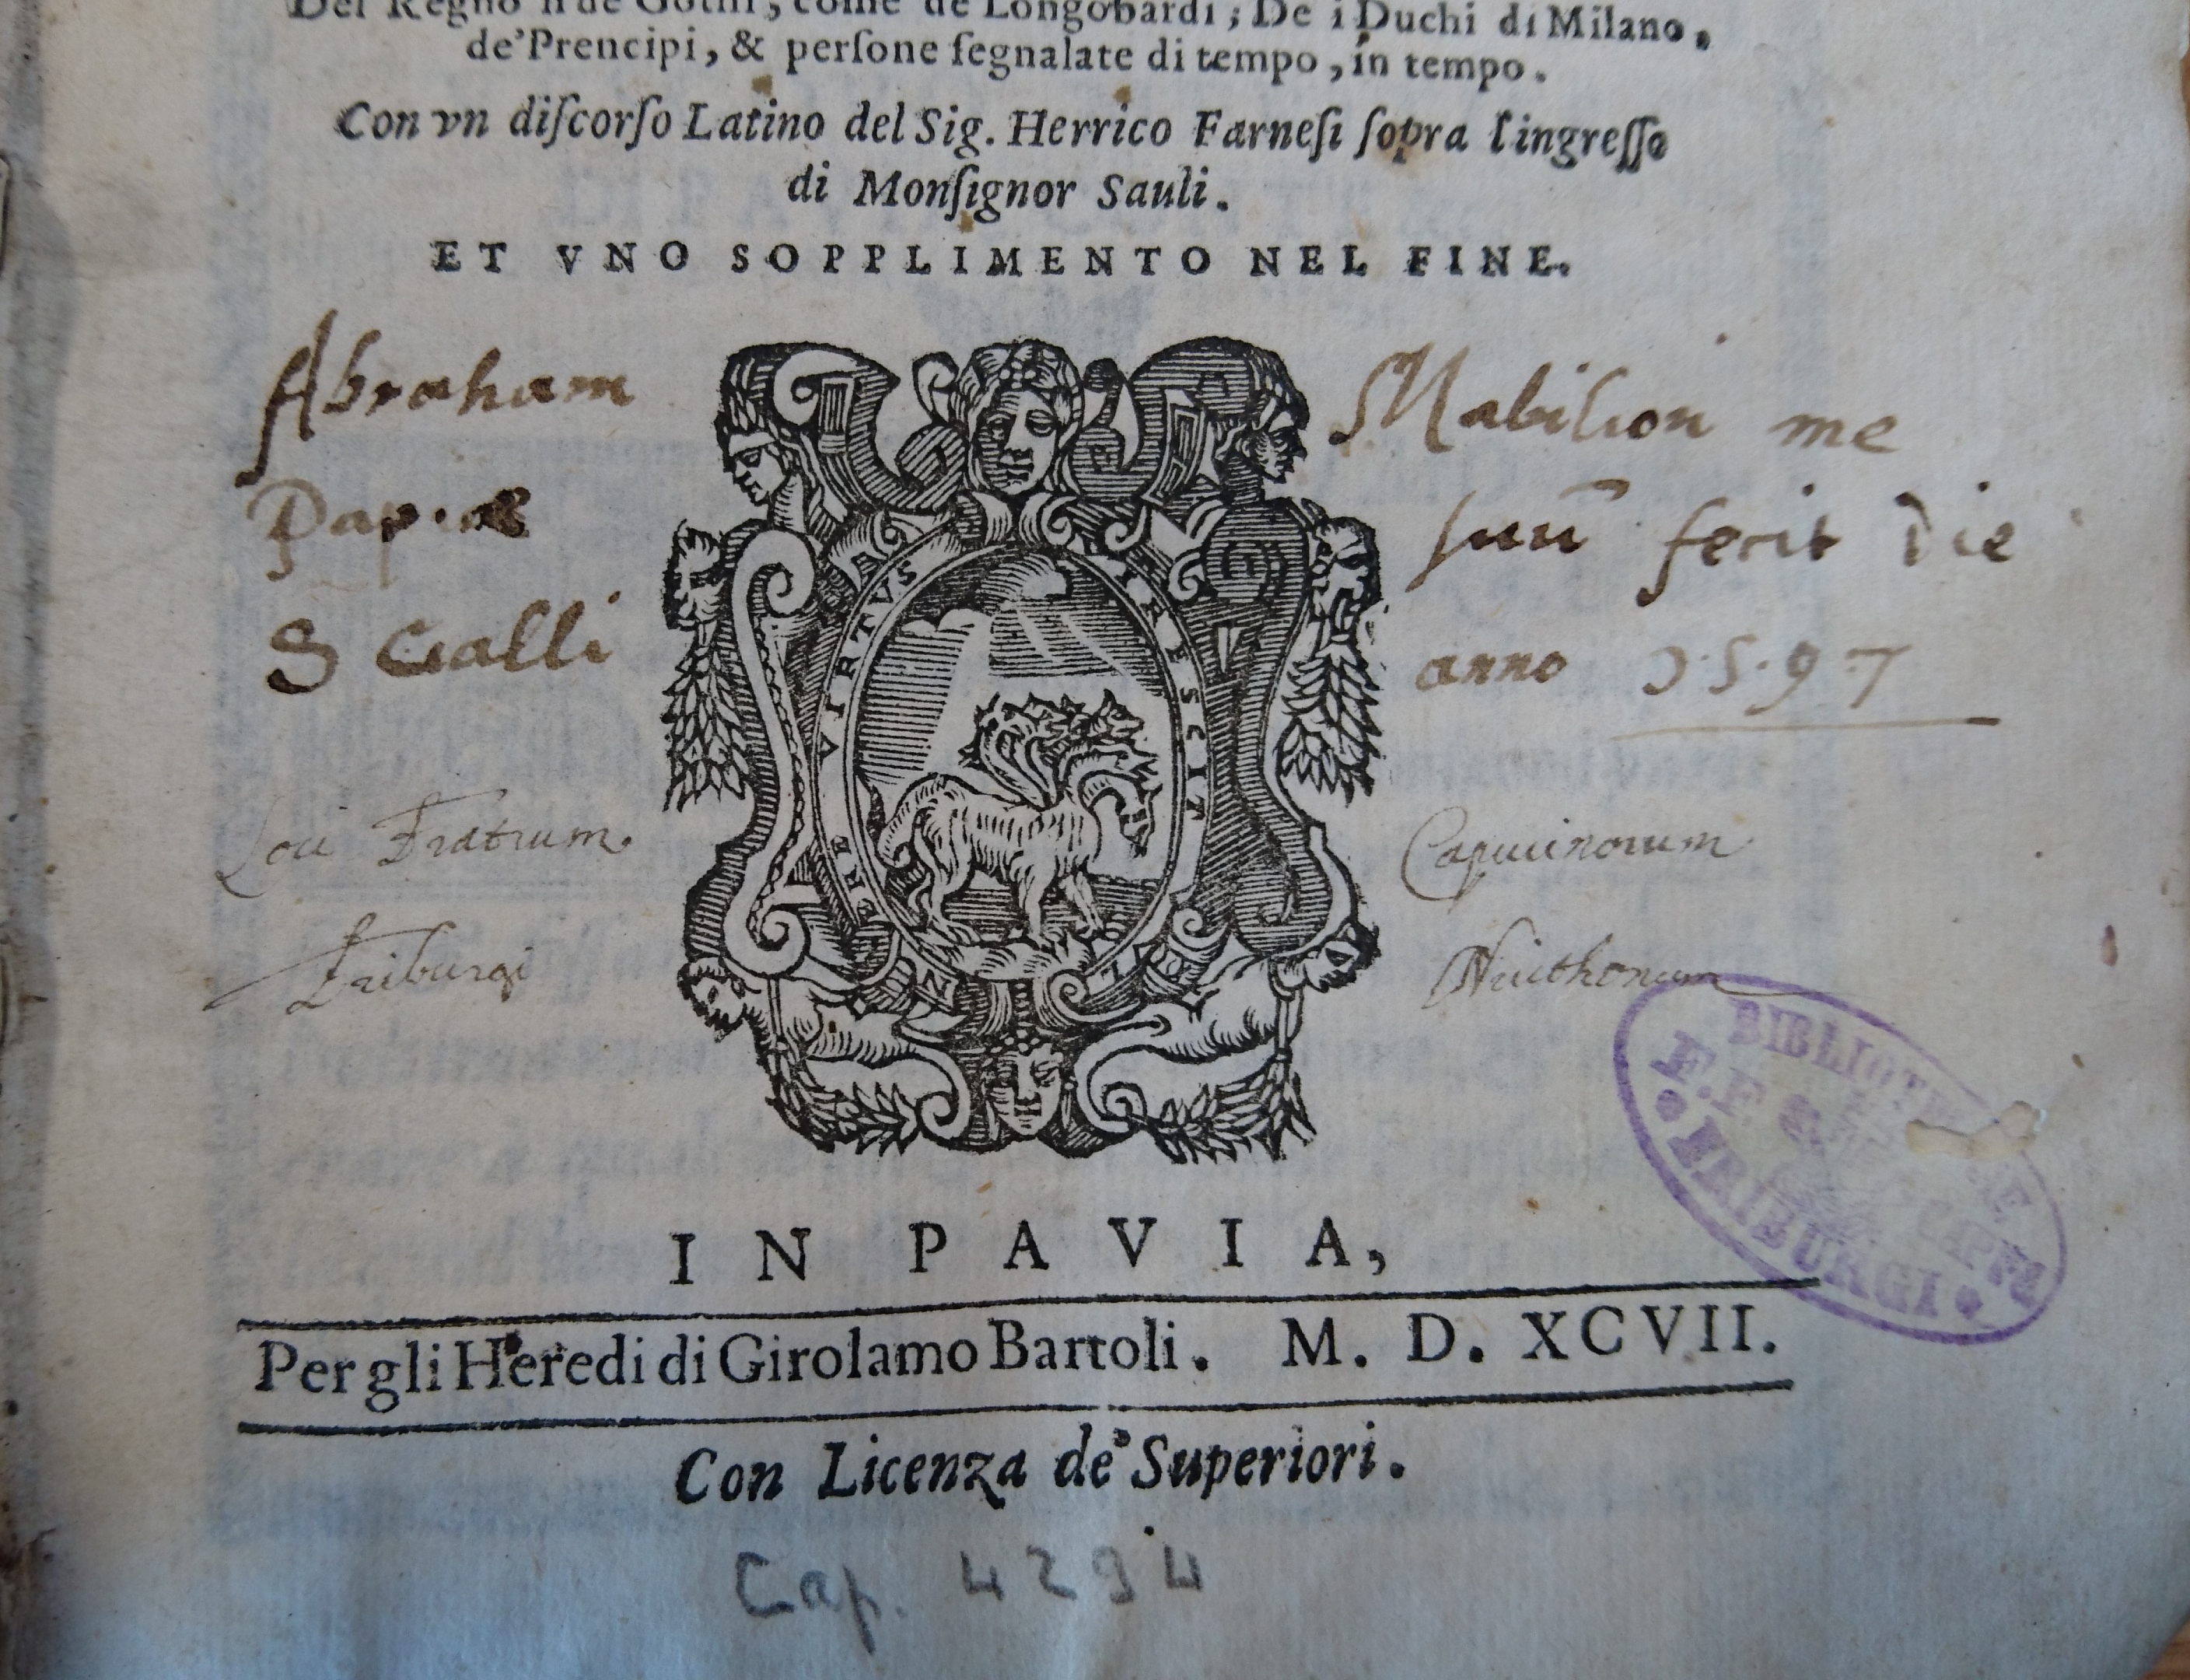 Del Regno sì de Gothi, come de Longobardi; De i Duchi di Milano,
de'Prencipi, & perſone ſegnalate di tempo, in tempo.
Con vn diſcorſo Latino del Sig. Herrico Farneſi ſopra l'ingreſſo
di Monſignor Sauli.
ET VNO SOPPLIMENTO NEL FINE.
Abraham Mabilion me
Papiæ suū fecit Die
S Galli anno 1597
VIRTVS
VIRESCIT
Loci Fratrum Capucinorum
Friburgi Nuithonum
BIBLIOTHECAE
F.F
FRIBURGI
IN PAVIA,
Per gli Heredi di Girolamo Bartoli. M. D. XCVII.
Con Licenza de' Superiori.
Cap. 4294